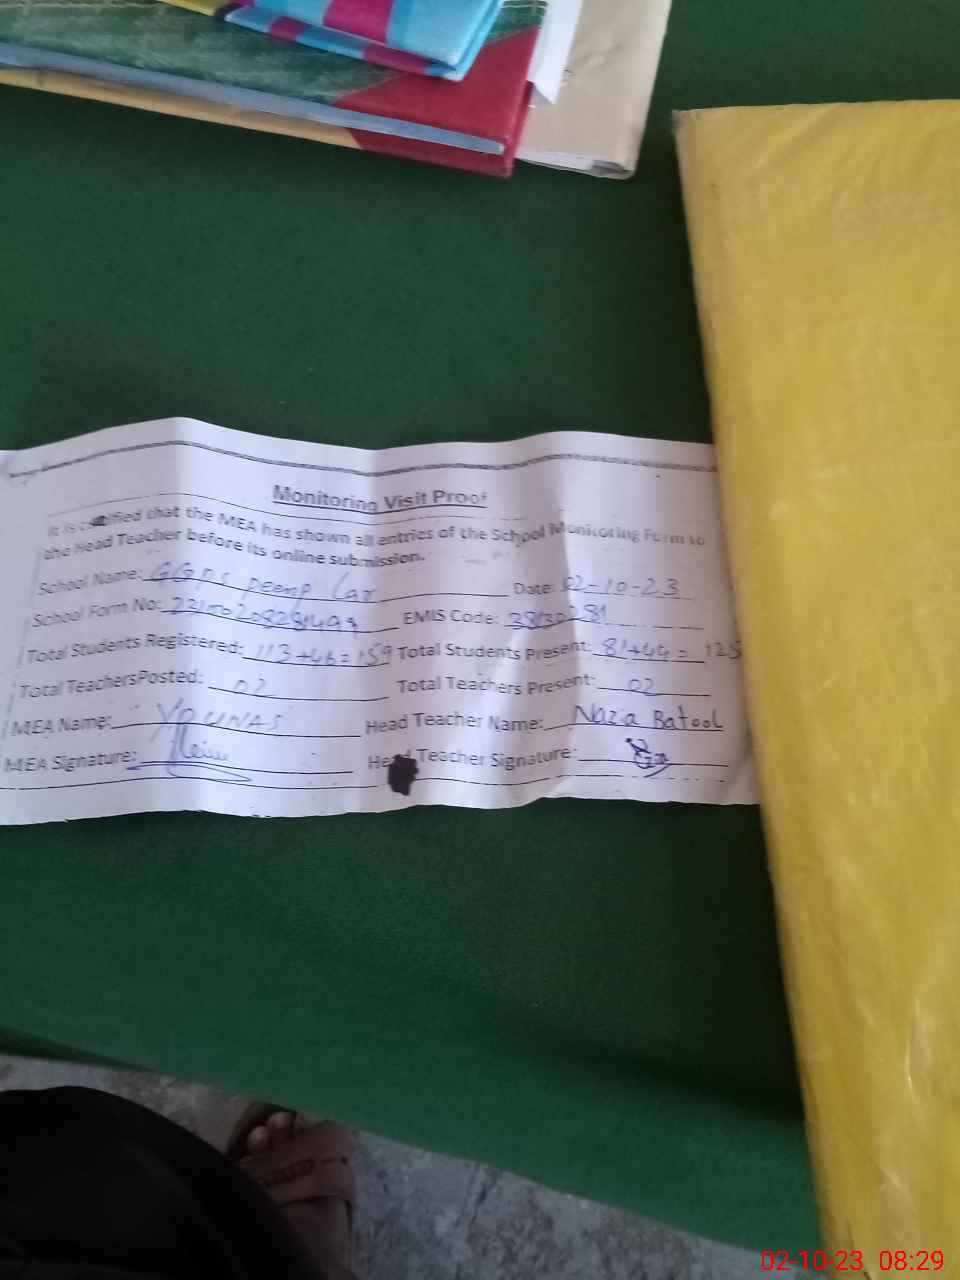 Monitoring Visit Proof
It is certified that the MEA has shown all entries of the School Monitoring Form to
the Head Teacher before its online submission.
School Name: GGPS Date: 02-10-23
School Form No: EMIS Code:
Total Students Registered: 113+46=159 Total Students Present: 81+44= 125
Total TeachersPosted: 02 Total Teachers Present: 02
MEA Name: YOUNAS Head Teacher Name: Nazia Batool
MEA Signature: Head Teacher Signature:
02-10-23 08:29